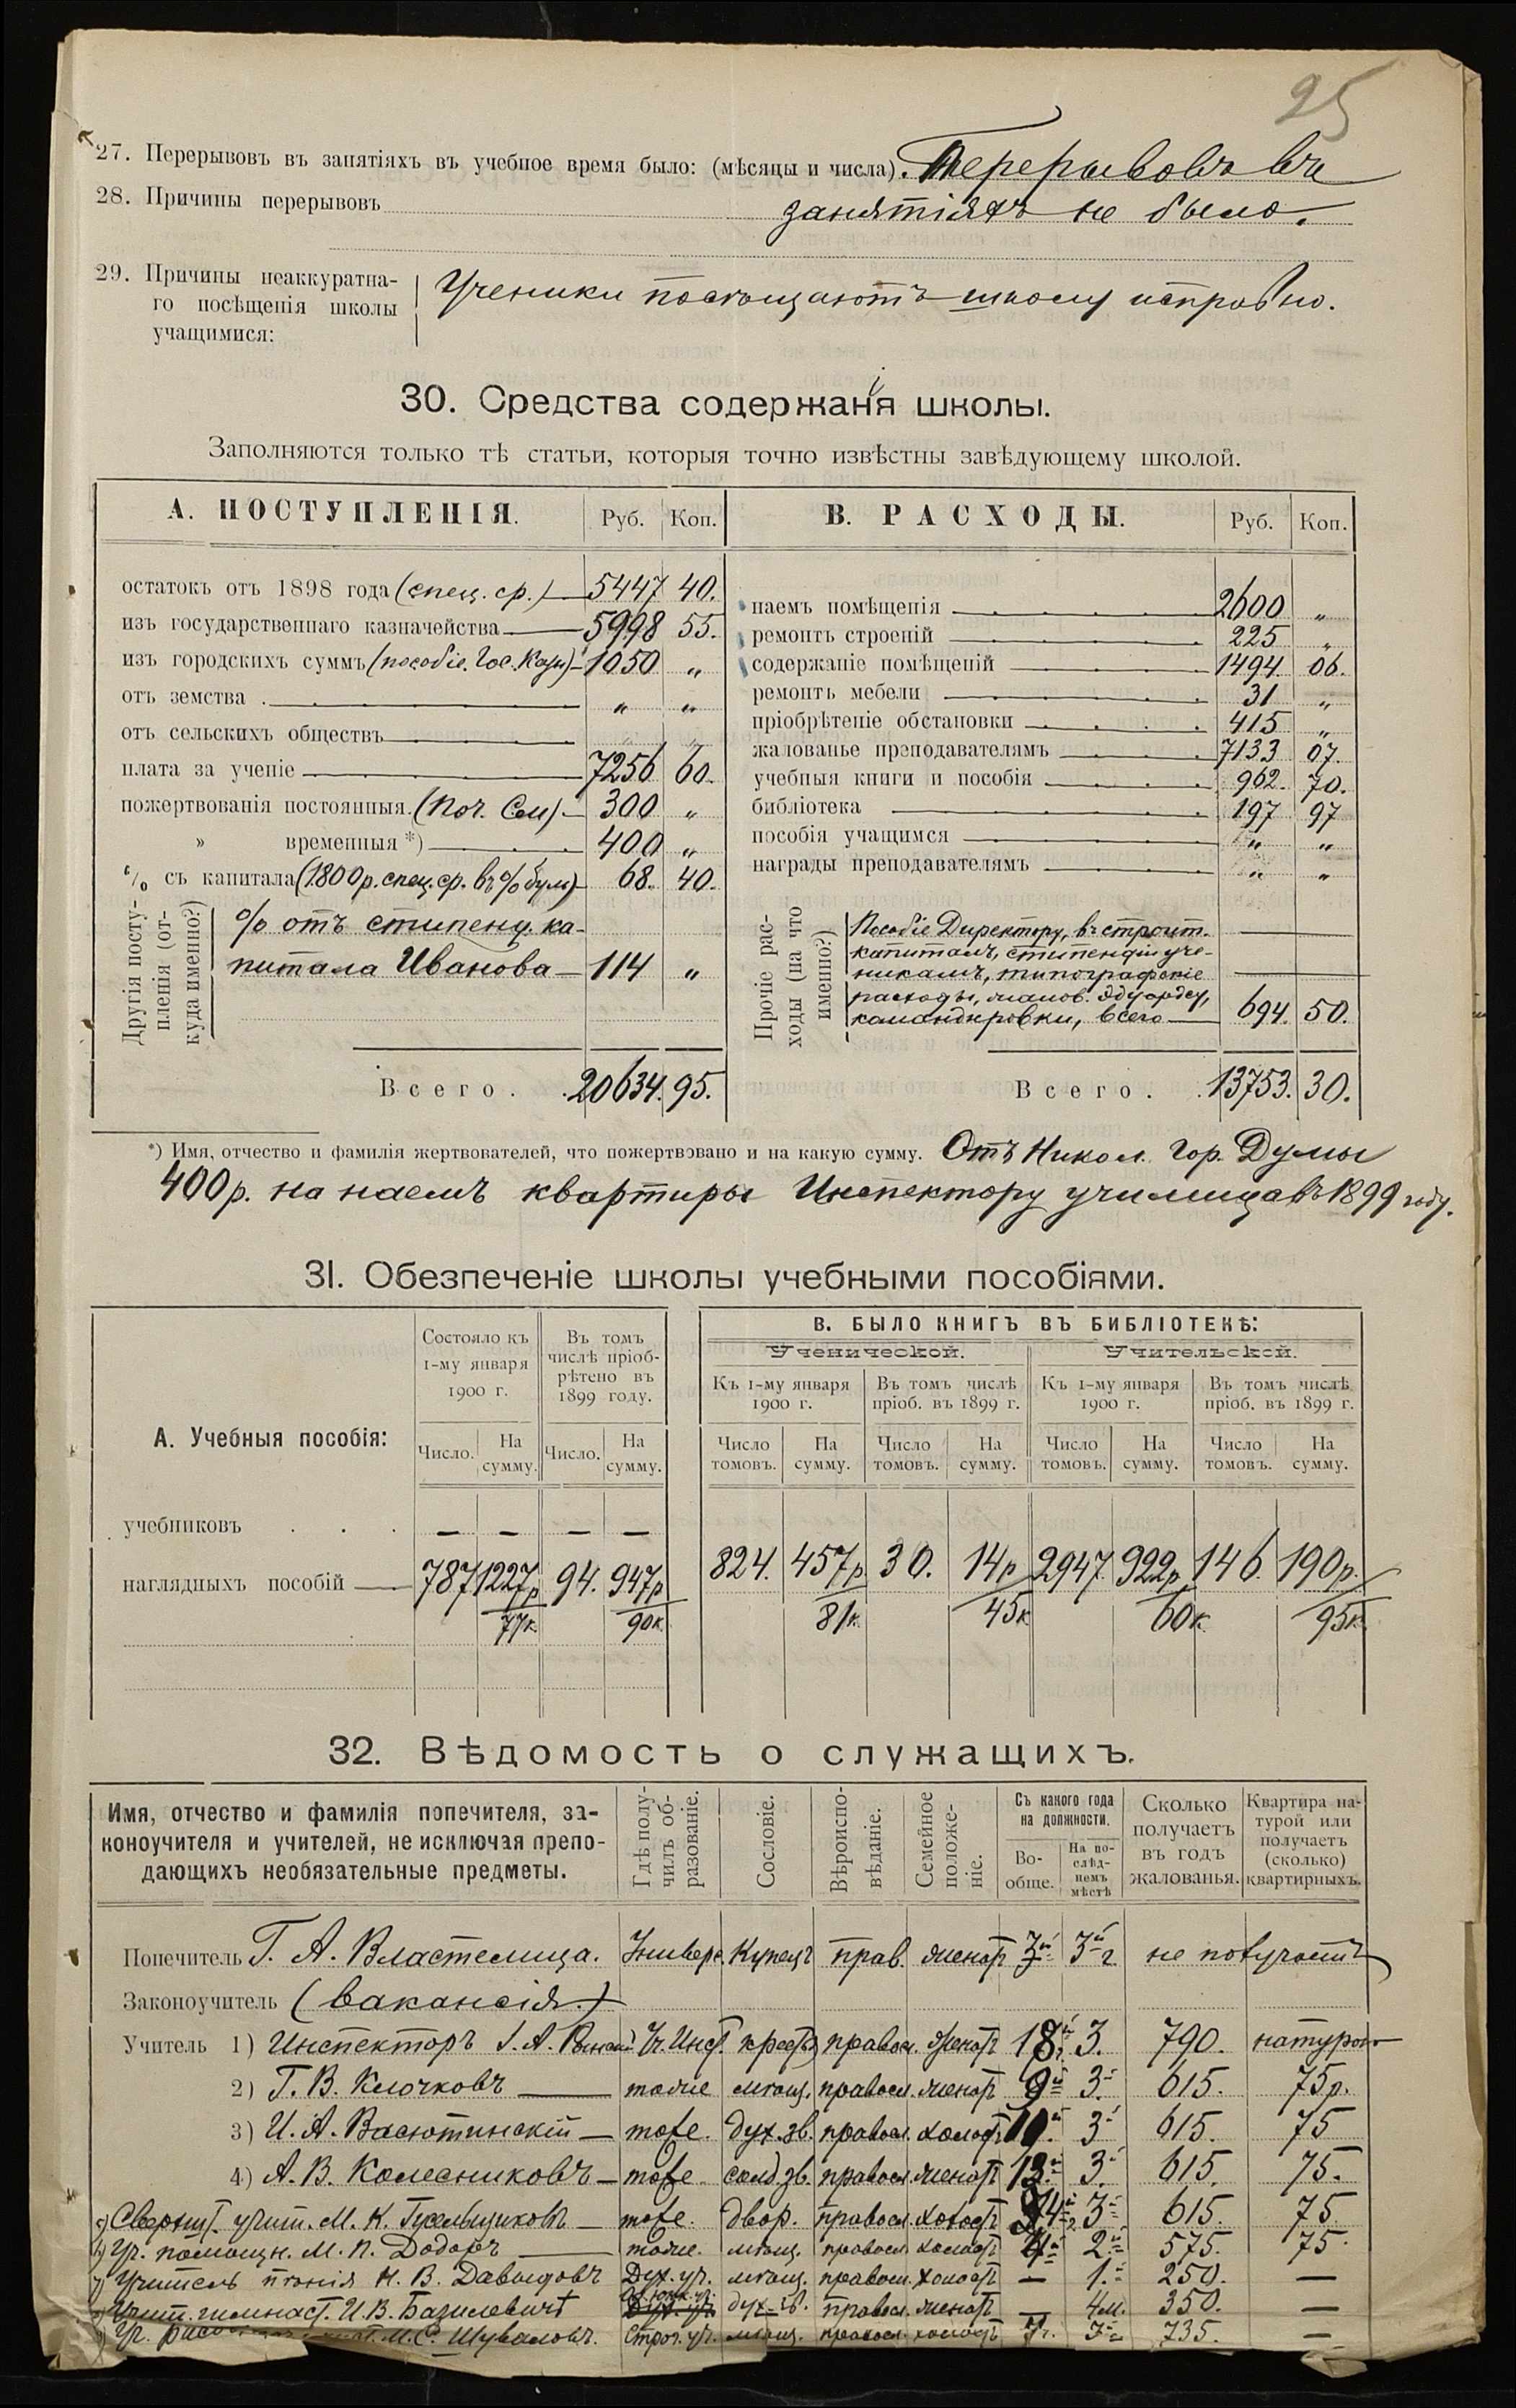 25
27. Перерывовъ въ занятіяхъ въ учебное время было: (мѣсяцы и числа). Перерывовъ въ
28. Причины перерывовъ занятіяхъ не было.
29. Причины неаккуратна-
го посѣщенія школы
учащимися:
Ученики посѣщаютъ школу исправно.
30. Средства содержанія школы.
Заполняются только тѣ статьи, которыя точно извѣстны завѣдующему школой.
А. ПОСТУПЛЕНІЯ. Руб. Коп.
остатокъ отъ 1898 года (спец. ср.) 5447 40.
изъ государственнаго казначейства 5998 55.
изъ городскихъ суммъ (пособіе. Гос. Казн.) 1050 „
отъ земства . „ „
отъ сельскихъ обществъ „ „
плата за ученіе 7256 60.
пожертвованія постоянныя. (Поч. См.) 300 „
» временныя *) 400 „
% съ капитала (1800 р. спец. ср. въ % бум.) 68. 40.
Другія посту-
пленія (от-
куда именно?)
% отъ стипенд. ка-
питала Иванова 114 „
Всего . . 20634. 95.
В. РАСХОДЫ. Руб. Коп.
наемъ помѣщенія 2600 „
ремонтъ строеній 225 „
содержаніе помѣщеній 1494. 06.
ремонтъ мебели 31 „
пріобрѣтеніе обстановки 415 „
жалованье преподавателямъ 7133 07.
учебныя книги и пособія 962. 70.
библіотека 197 97
пособія учащимся „ „
награды преподавателямъ „ „
Прочіе рас-
ходы (на что
именно?)
Пособіе Директору, въ строит.
капиталъ, стипендіи уче-
никамъ, типографскіе
расходы,
командировки, всего 694. 50.
Всего . . 13753. 30.
*) Имя, отчество и фамилія жертвователей, что пожертвовано и на какую сумму. Отъ Никол. Гор. Думы
400 р. на наемъ квартиры Инспектору училища въ 1899 году.
31. Обезпеченіе школы учебными пособіями.
А. Учебныя пособія:
Состояло къ
1-му января
1900 г.
Въ томъ
числѣ пріоб-
рѣтено въ
1899 году.
Число. На сумму. Число. На сумму.
учебниковъ . . . — — — —
наглядныхъ пособій 787 1227 р 77 к. 94. 947 р 90 к.
В. БЫЛО КНИГЪ ВЪ БИБЛІОТЕКѢ:
Ученической. Учительской.
Къ 1-му января 1900 г. Въ томъ числѣ пріоб. въ 1899 г. Къ 1-му января 1900 г. Въ томъ числѣ пріоб. въ 1899 г.
Число томовъ. На сумму. Число томовъ. На сумму. Число томовъ. На сумму. Число томовъ. На сумму.
824. 457 р 30. 14 р 2947. 922 р 146. 190 р.
81 к. 45 к 60 к. 95 к.
32. Вѣдомость о служащихъ.
Имя, отчество и фамилія попечителя, за-
коноучителя и учителей, не исключая препо-
дающихъ необязательные предметы.
Гдѣ полу-
чилъ об-
разованіе.
Сословіе.
Вѣроиспо-
вѣданіе.
Семейное
положе-
ніе.
Съ какого года
на должности.
Во-
обще.
На по-
слѣд-
немъ
мѣстѣ
Сколько
получаетъ
въ годъ
жалованья.
Квартира на-
турой или
получаетъ
(сколько)
квартирныхъ.
Попечитель Г. А. Властелица. Универс. Купецъ прав. женат 3й 3й г. не получаетъ
Законоучитель (вакансія.)
Учитель 1) Инспекторъ Уч. Инст. правосл. женатъ 18й 3. 790. натурою
2) Г. В. Клочковъ тоже мѣщ. правосл. женатъ 9й 3й 615. 75 р.
3) И. А. Васютинскій тоже. дух. зв. правосл. холост 10й 3й 615. 75
4) А. В. Колесниковъ тоже солд. зв. правосл женатъ 13й 3й 615. 75.
5) Сверхшт. учит. М. К. тоже. двор. правосл. холостъ 3й 615. 75
6) Уч. помощн. М. П. Додонъ тоже. мѣщ. правосл холостъ 4й 2й 575. 75.
7) Учитель пѣнія Н. В. Давыдовъ Дух. уч. мѣщ. правосл. холостъ — 1й 250. —
Учит. гимнаст. И. В. Базилевичъ дух. зв. правосл. женатъ — 4 м. 350. —
М. С. Шуваловъ. Строг. уч. мѣщ. правосл. холостъ 7 г. 7 г. 735. —